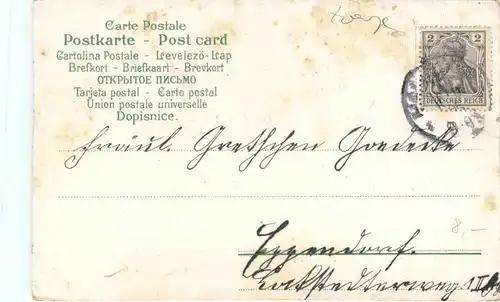 Carte Postale
Postkarte - Post card
Cartolina Postale - Levelezö-Lap
Brefkort - Briefkaart - Brevkort
ОТКРЫТОЕ ПИСЬМО
Tarjeta postal - Carto postal
Union postale universelle
Dopisnice.
2 2
DEUTSCHES REICH
Fräul. Gretchen Goedecke
8,-
Eppendorf.
Lokstedterweg